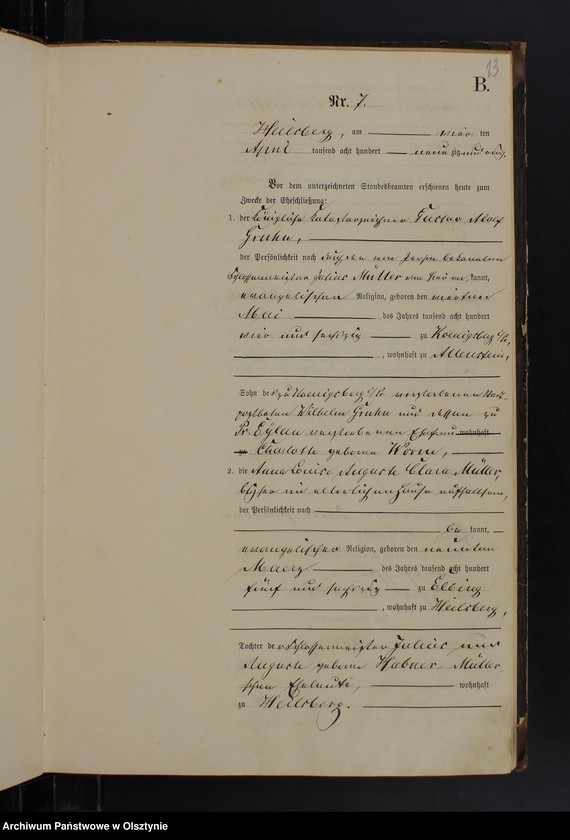 13
B.
Nr. 7.
Heilsberg, am vier ten
April tausend acht hundert neunzig und
Vor dem unterzeichneten Standesbeamten erschienen heute zum
Zwecke der Eheschließung:
1. der Königliche Katasterzeichner Gustav Adolf
Gruhn,
der Persönlichkeit nach durch den von Person bekannten
Schlossermeister Julius Müller von hier an kannt,
evangelischer Religion, geboren den vierten
Mai des Jahres tausend acht hundert
vier und sechszig zu Koenigsberg i/Pr,
, wohnhaft zu Allenstein,
Sohn des zu Koenigsberg i/Pr verstorbenen
Wilhelm Gruhn und dessen zu
Pr. Eylau verstorbenen Ehefrau wohnhaft
zu Charlotte geborne Worm,
2. die Anna Louise Auguste Clara Müller,
bisher im elterlichen Hause aufhaltsam,
der Persönlichkeit nach
be kannt,
evangelischer Religion, geboren den neunten
Maerz des Jahres tausend acht hundert
fünf und sechszig zu Elbing
, wohnhaft zu Heilsberg,
Tochter der Schlossermeister Julius und
Auguste geborne Habner Müller
schen Eheleute, wohnhaft
zu Heilsberg.
Archiwum Państwowe w Olsztynie